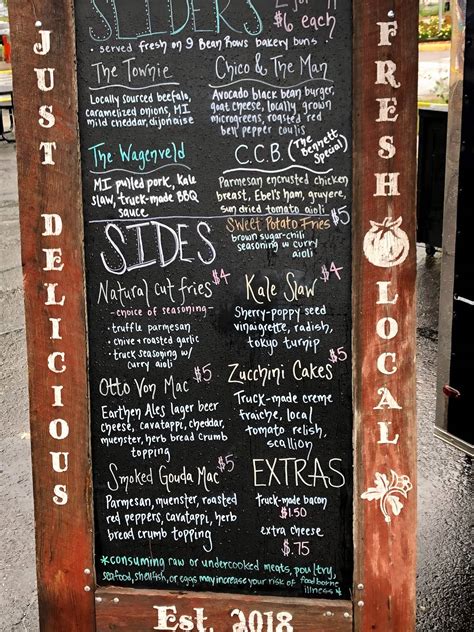 JUST DELICIOUS
SLIDERS
$6 each
• served fresh on 9 Bean Rows bakery buns •
The Townie
Locally sourced beefalo,
caramelized onions, MI
mild cheddar, dijonaise
Chico & The Man
Avocado black bean burger,
goat cheese, locally grown
microgreens, roasted red
bell pepper coulis
The Wagenveld
MI pulled pork, kale
slaw, truck-made BBQ
sauce
C.C.B. (The Bennett Special)
Parmesan encrusted chicken
breast, Ebel's ham, gruyere,
sun dried tomato aioli
SIDES
Sweet Potato Fries $5
brown sugar-chili
seasoning w curry
aioli
Natural cut fries $4
- choice of seasoning -
• truffle parmesan
• chive + roasted garlic
• truck seasoning w/
curry aioli
Kale Slaw $4
Sherry-poppy seed
vinaigrette, radish,
tokyo turnip
Otto Von Mac $5
Earthen Ales lager beer
cheese, cavatappi, cheddar,
muenster, herb bread crumb
topping
Zucchini Cakes $5
Truck-made creme
fraiche, local
tomato relish,
scallion
Smoked Gouda Mac $5
Parmesan, muenster, roasted
red peppers, cavatappi, herb
bread crumb topping
EXTRAS
truck-made bacon
$1.50
extra cheese
$.75
*consuming raw or undercooked meats, poultry,
seafood, shellfish, or eggs may increase your risk of food borne
illness
Est. 2018
FRESH LOCAL